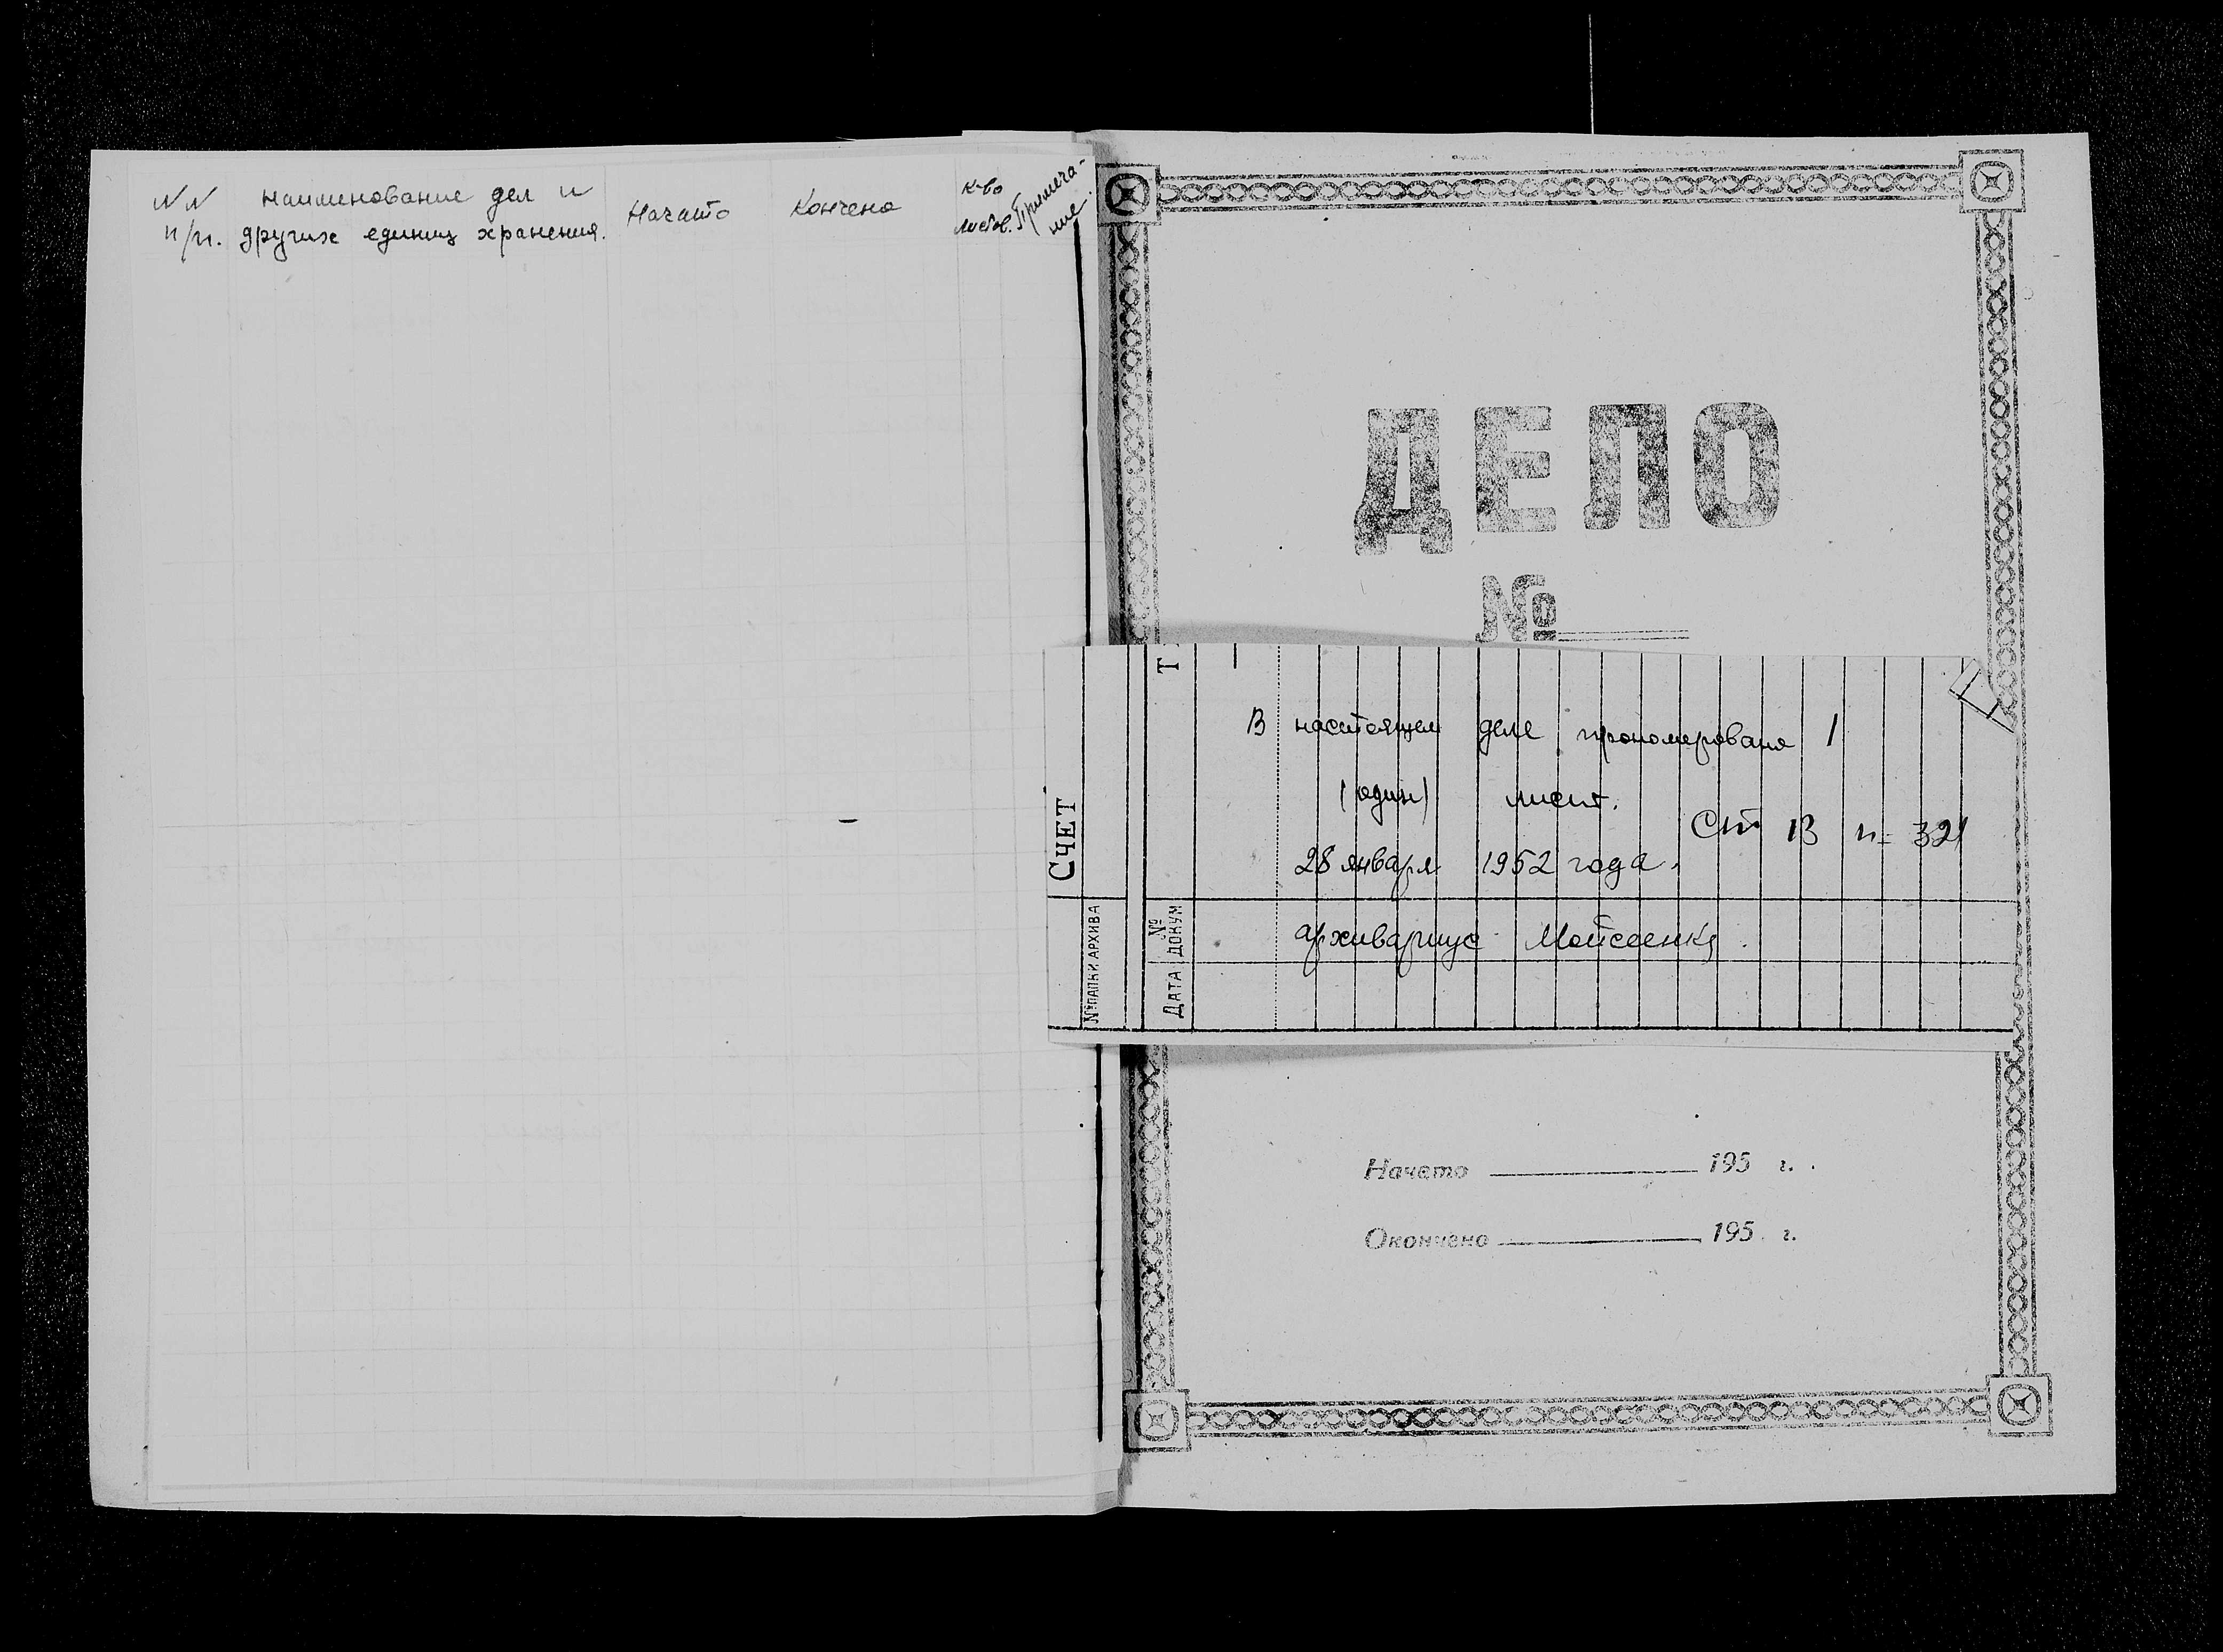 NN
п/п.
наименование дел и
других единиц хранения.
Начато
Кончено
к-во
листов.
Примеча-
ние.
ДЕЛО
№
СЧЕТ
№ ПАПКИ АРХИВА
ДАТА
№ ДОКУМ
В настоящем деле пронумеровано 1
(один) лист.
Ст 13 п = 321
28 января 1952 года.
архивариус Мойсеенко.
Начато 195 г.
Окончено 195 г.